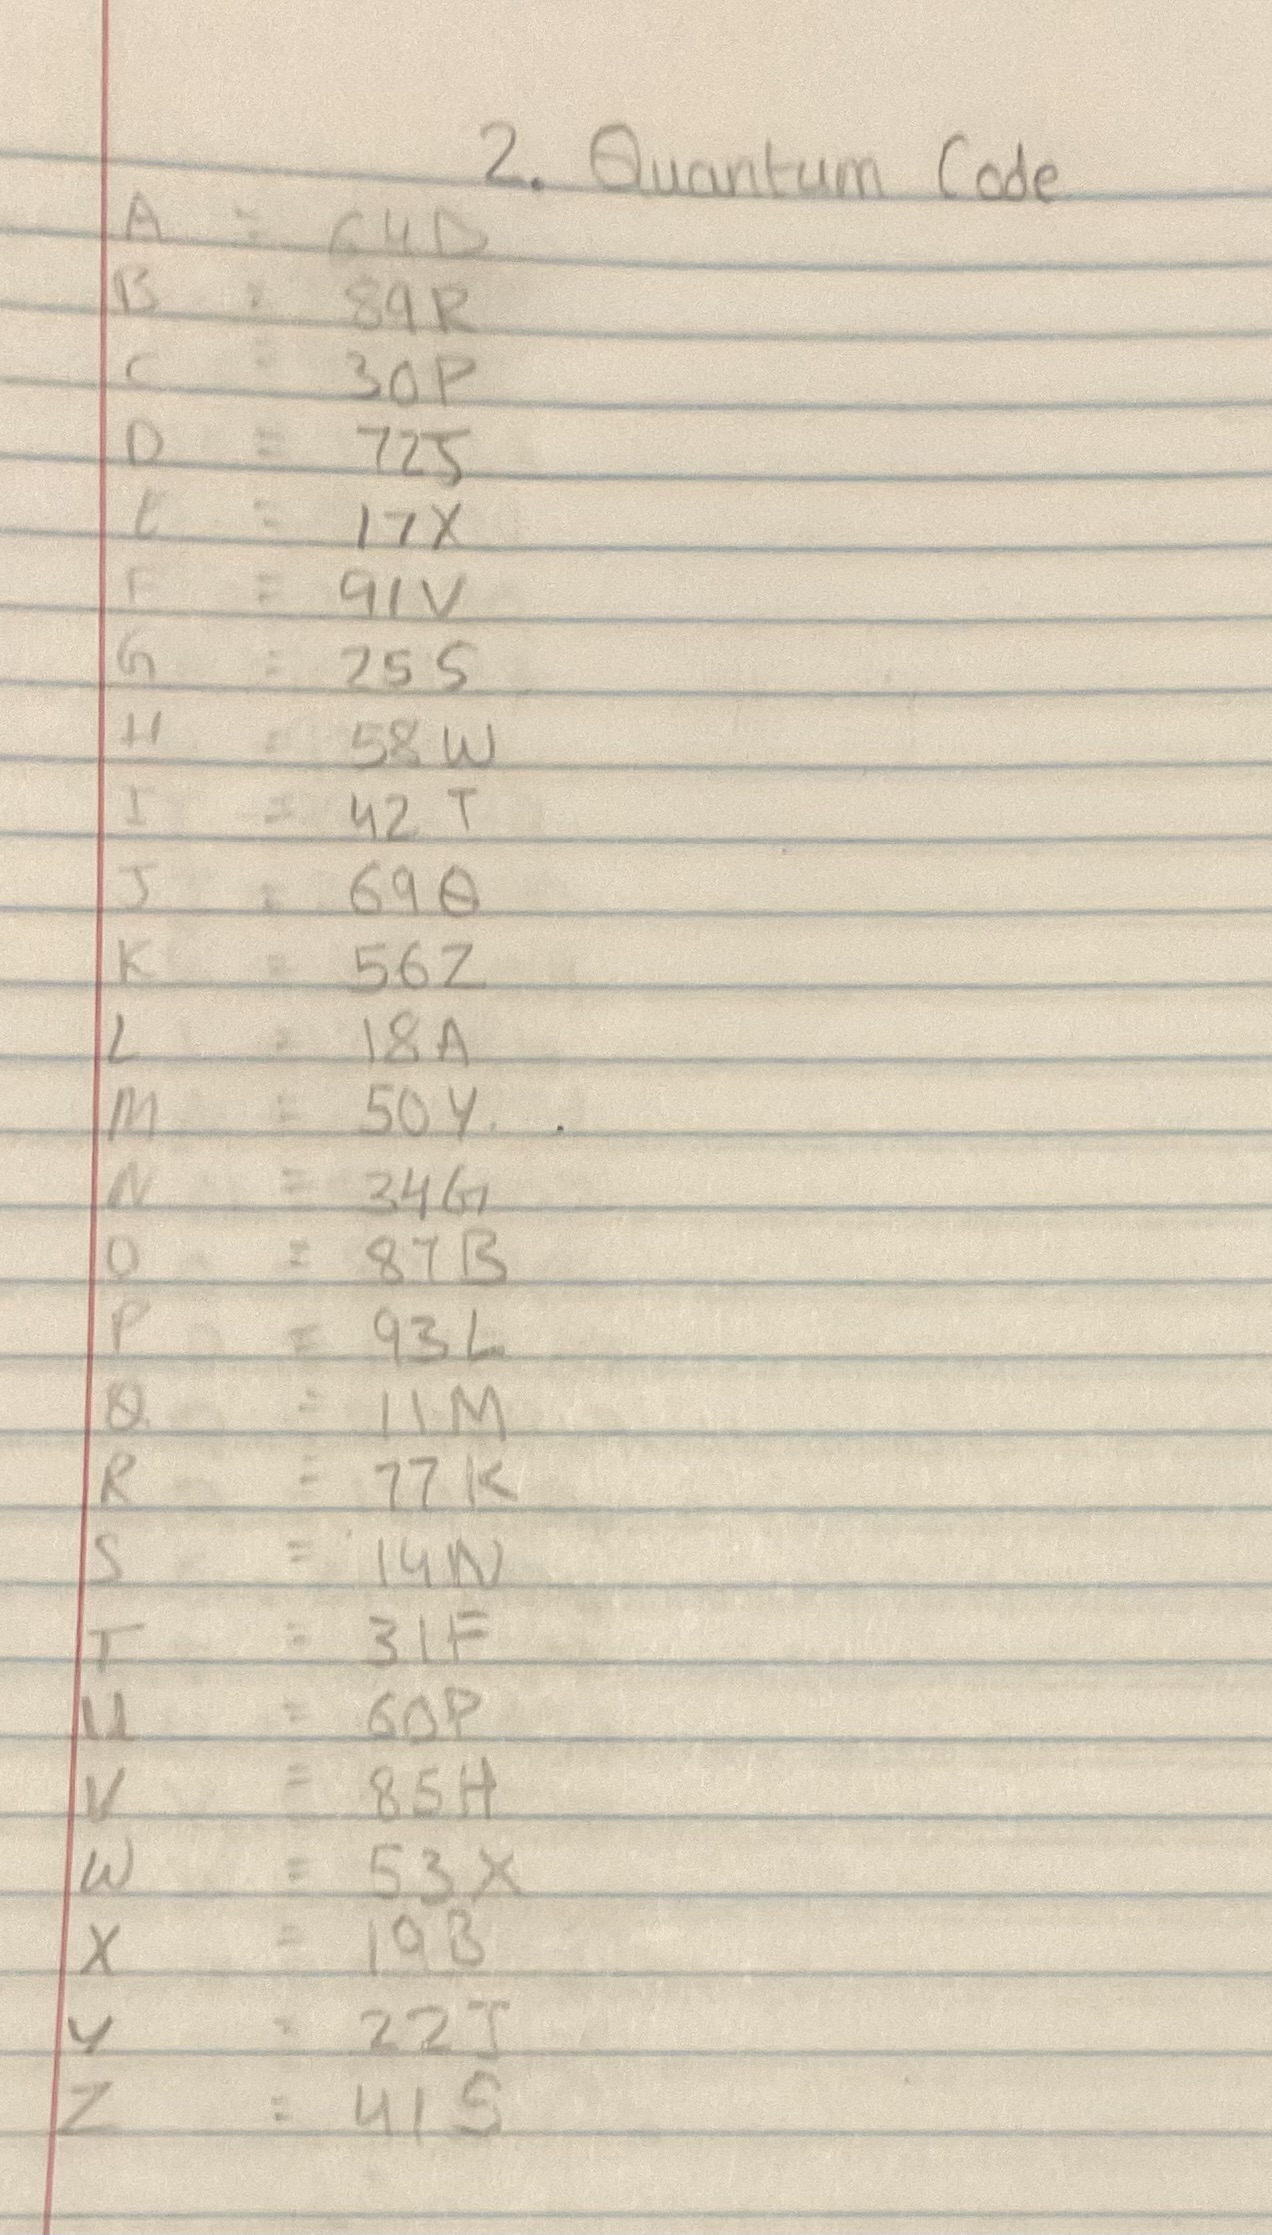 2. Quantum Code
A = 64D
B = 89R
C = 30P
D = 72J
E = 17X
F = 91V
G = 25S
H = 58W
I = 42T
J = 69Q
K = 56Z
L = 18A
M = 50Y.
N = 34G
O = 87B
P = 93L
Q = 11M
R = 77K
S = 14N
T = 31F
U = 60P
V = 85H
W = 53X
X = 19B
Y = 22J
Z = 41S